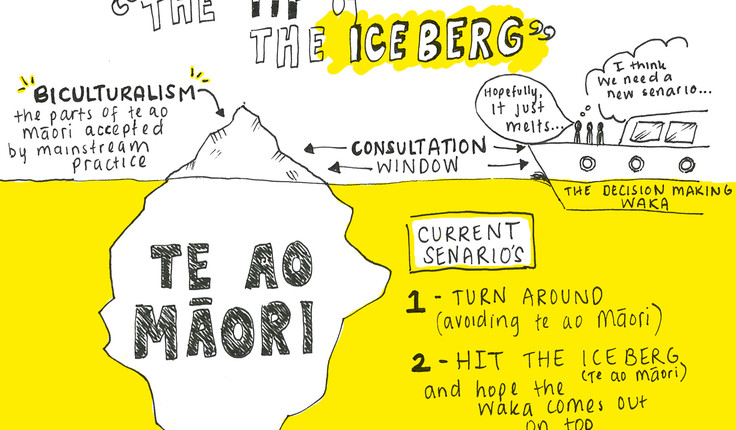 "THE TIP of
THE ICEBERG"
BICULTURALISM
the parts of te ao
māori accepted
by mainstream
practice
CONSULTATION
WINDOW
Hopefully,
it just
melts...
I think
we need a
new senario...
THE DECISION MAKING
WAKA
TE AO
MĀORI
CURRENT
SENARIO'S
1 - TURN AROUND
(avoiding te ao māori)
2 - HIT THE ICEBERG
(te ao māori)
and hope the
waka comes out
on top